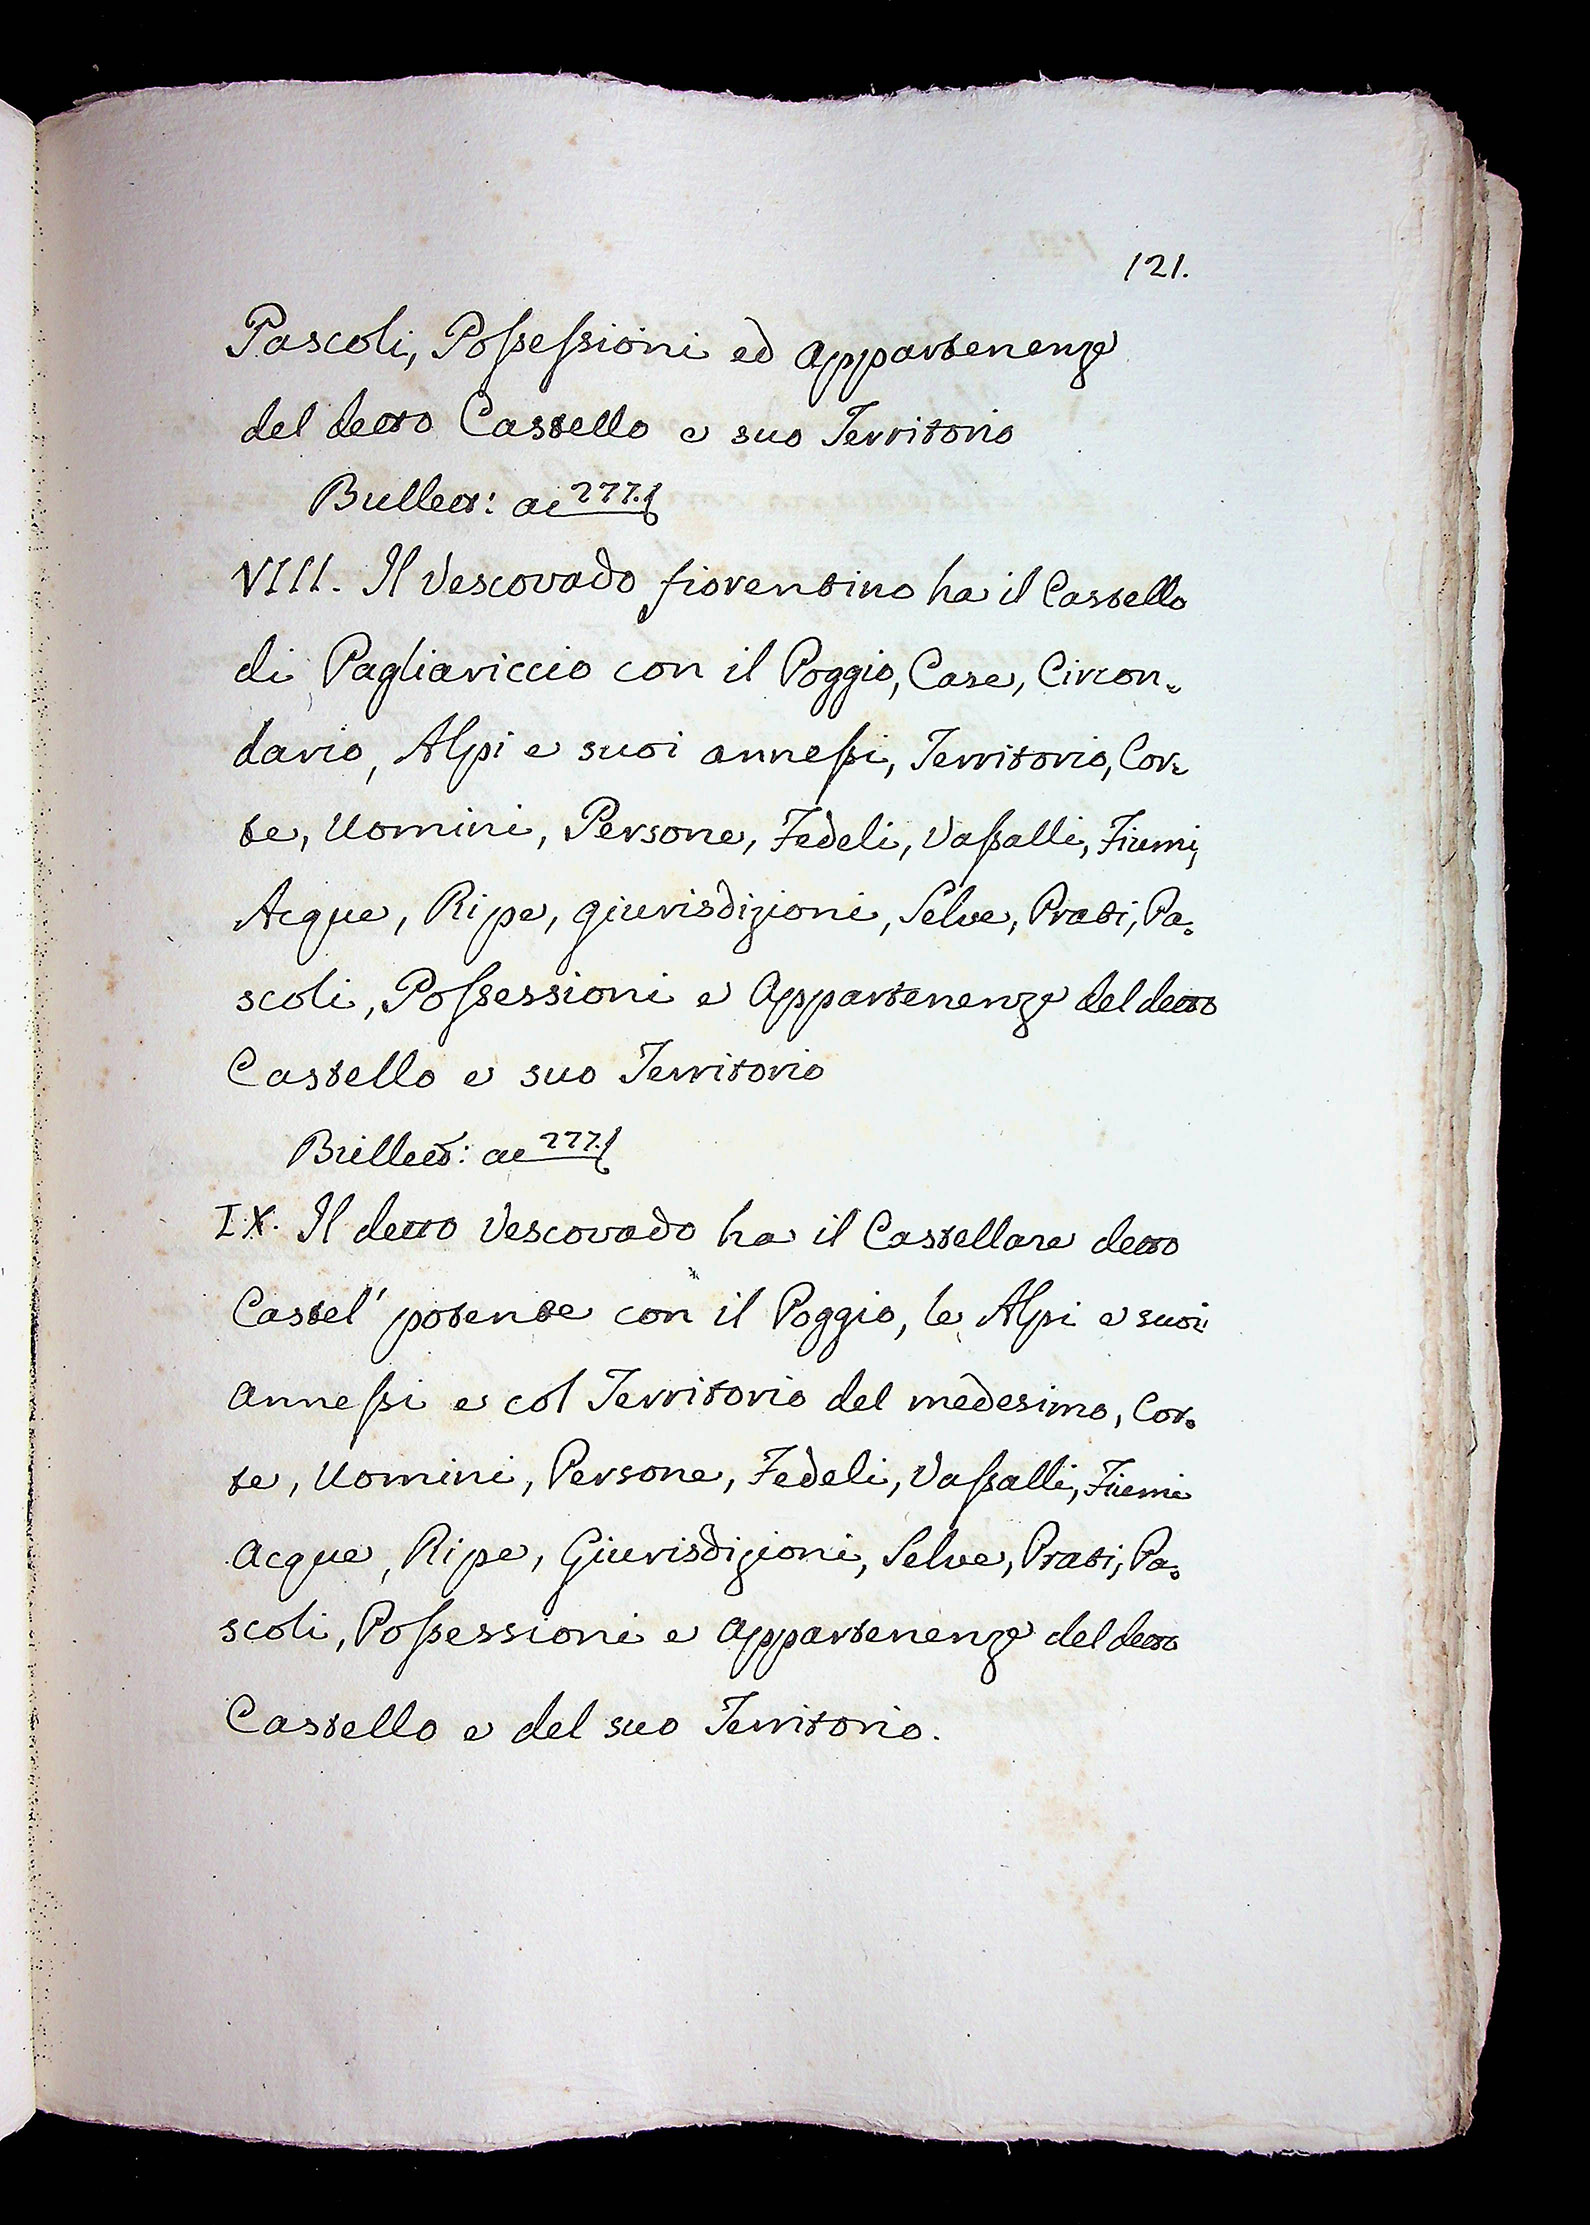 121.
Pascoli, Possessioni ed Appartenenze
del detto Castello e suo Territorio
Bullett: a 277.
VIII. Il Vescovado fiorentino ha il Castello
di Pagliariccio con il Poggio, Case, Circon=
dario, Alpi e suoi annessi, Territorio, Cor=
te, Uomini, Persone, Fedeli, Vassalli, Fiumi,
Acque, Ripe, giurisdizioni, Selve, Prati, Pa=
scoli, Possessioni e Appartenenze del detto
Castello e suo Territorio
Bullett: a 277.
IX. Il detto Vescovado ha il Castellare detto
Castel' potente con il Poggio, le Alpi e suoi
Annessi e col Territorio del medesimo, Cor=
te, Uomini, Persone, Fedeli, Vassalli, Fiumi
Acque, Ripe, Giurisdizioni, Selve, Prati, Pa=
scoli, Possessioni e Appartenenze del detto
Castello e del suo Territorio.